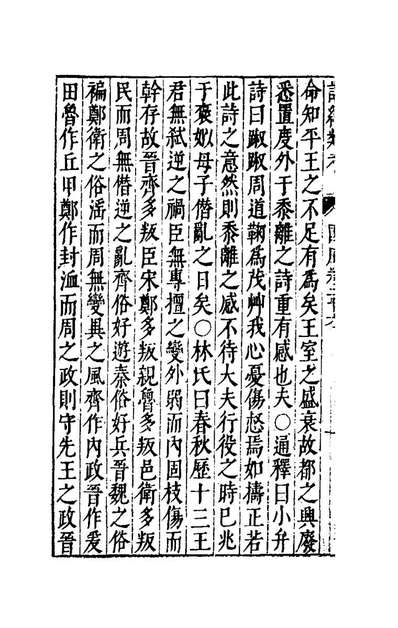 命知平王之不足有爲矣王室之盛衰故都之興廢
悉置度外于黍離之詩重有感也夫〇通釋曰小弁
詩曰踧踧周道鞫爲茂艸我心憂傷惄焉如擣正若
此詩之意然則黍離之感不待大夫行役之時已兆
于褒姒母子僭亂之日矣〇林氏曰春秋歷十三王
君無弑逆之禍臣無專擅之變外弱而內固枝傷而
幹存故晉齊多叛臣宋鄭多叛親魯多叛邑衛多叛
民而周無僭逆之亂齊俗好遊秦俗好兵晉魏之俗
褊鄭衛之俗滛而周無變異之風齊作內政晉作爰
田魯作丘甲鄭作封洫而周之政則守先王之政晉